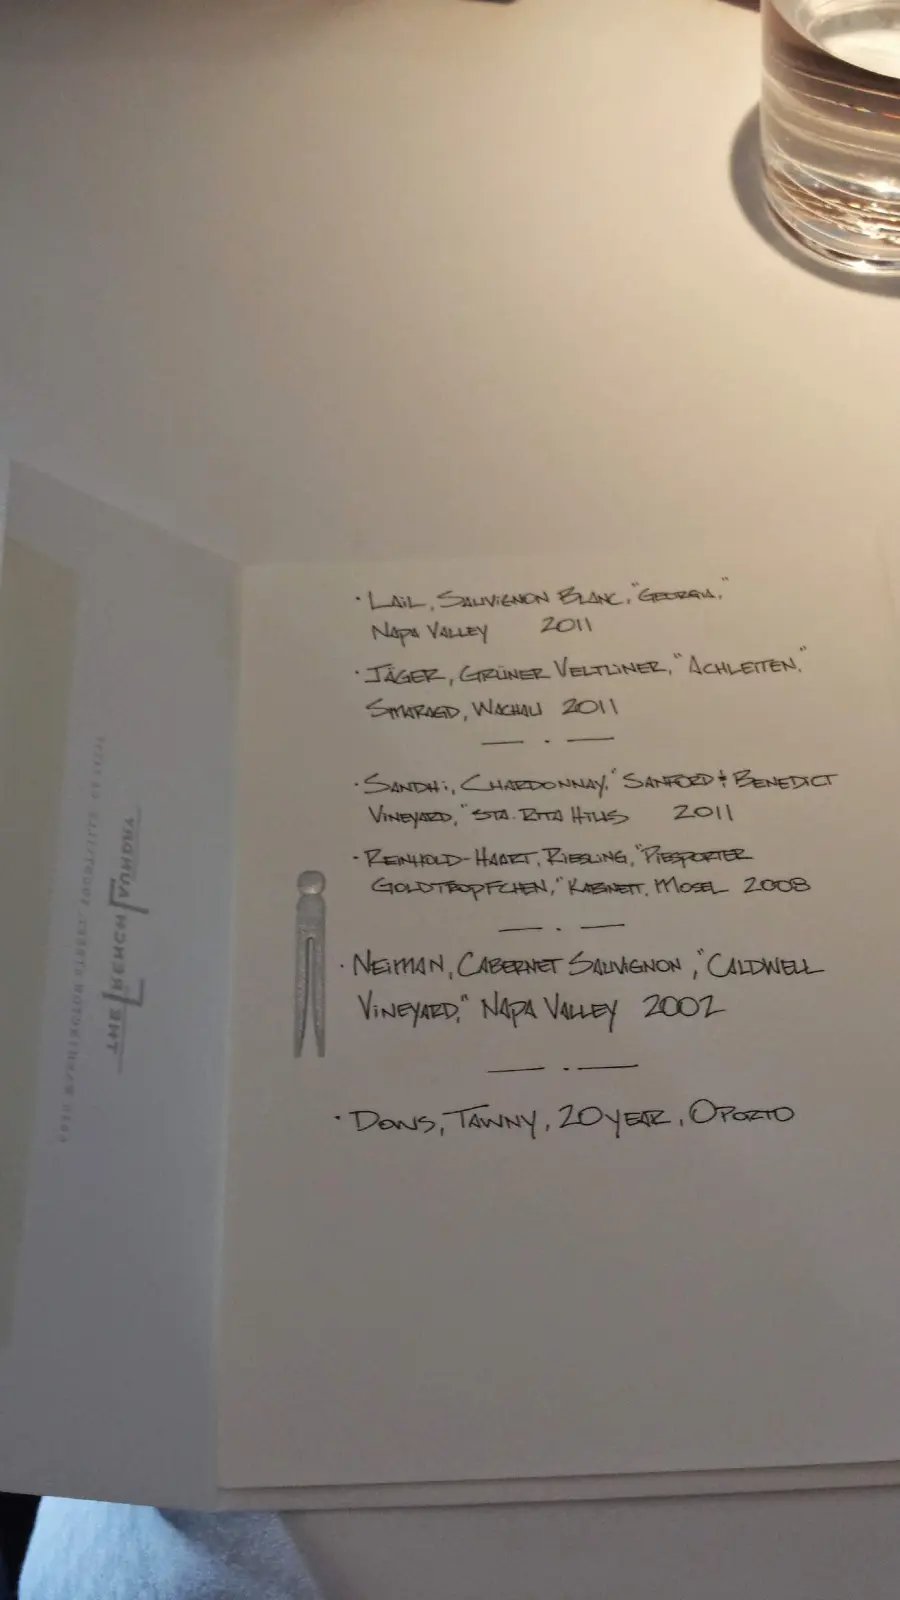 · LAIL, SAUVIGNON BLANC, "GEORGIA,"
NAPA VALLEY 2011
· JÄGER, GRÜNER VELTLINER, "ACHLEITEN,"
SMARAGD, WACHAU 2011
— · —
· SANDHI, CHARDONNAY, "SANFORD & BENEDICT
VINEYARD," STA. RITA HILLS 2011
· REINHOLD-HAART, RIESLING, "PIESPORTER
GOLDTRÖPFCHEN," KABINETT, MOSEL 2008
— · —
· NEIMAN, CABERNET SAUVIGNON, "CALDWELL
VINEYARD," NAPA VALLEY 2002
— · —
· DOWS, TAWNY, 20 YEAR, OPORTO
THE FRENCH LAUNDRY